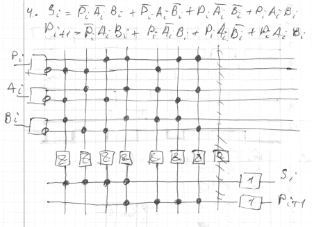 4. Si = P̅i A̅i Bi + P̅i Ai B̅i + Pi A̅i B̅i + Pi Ai Bi
Pi+1 = P̅i Ai Bi + Pi A̅i Bi + Pi Ai B̅i + Pi Ai Bi
Pi
Ai
Bi
& & & & & & & &
1 Si
1 Pi+1